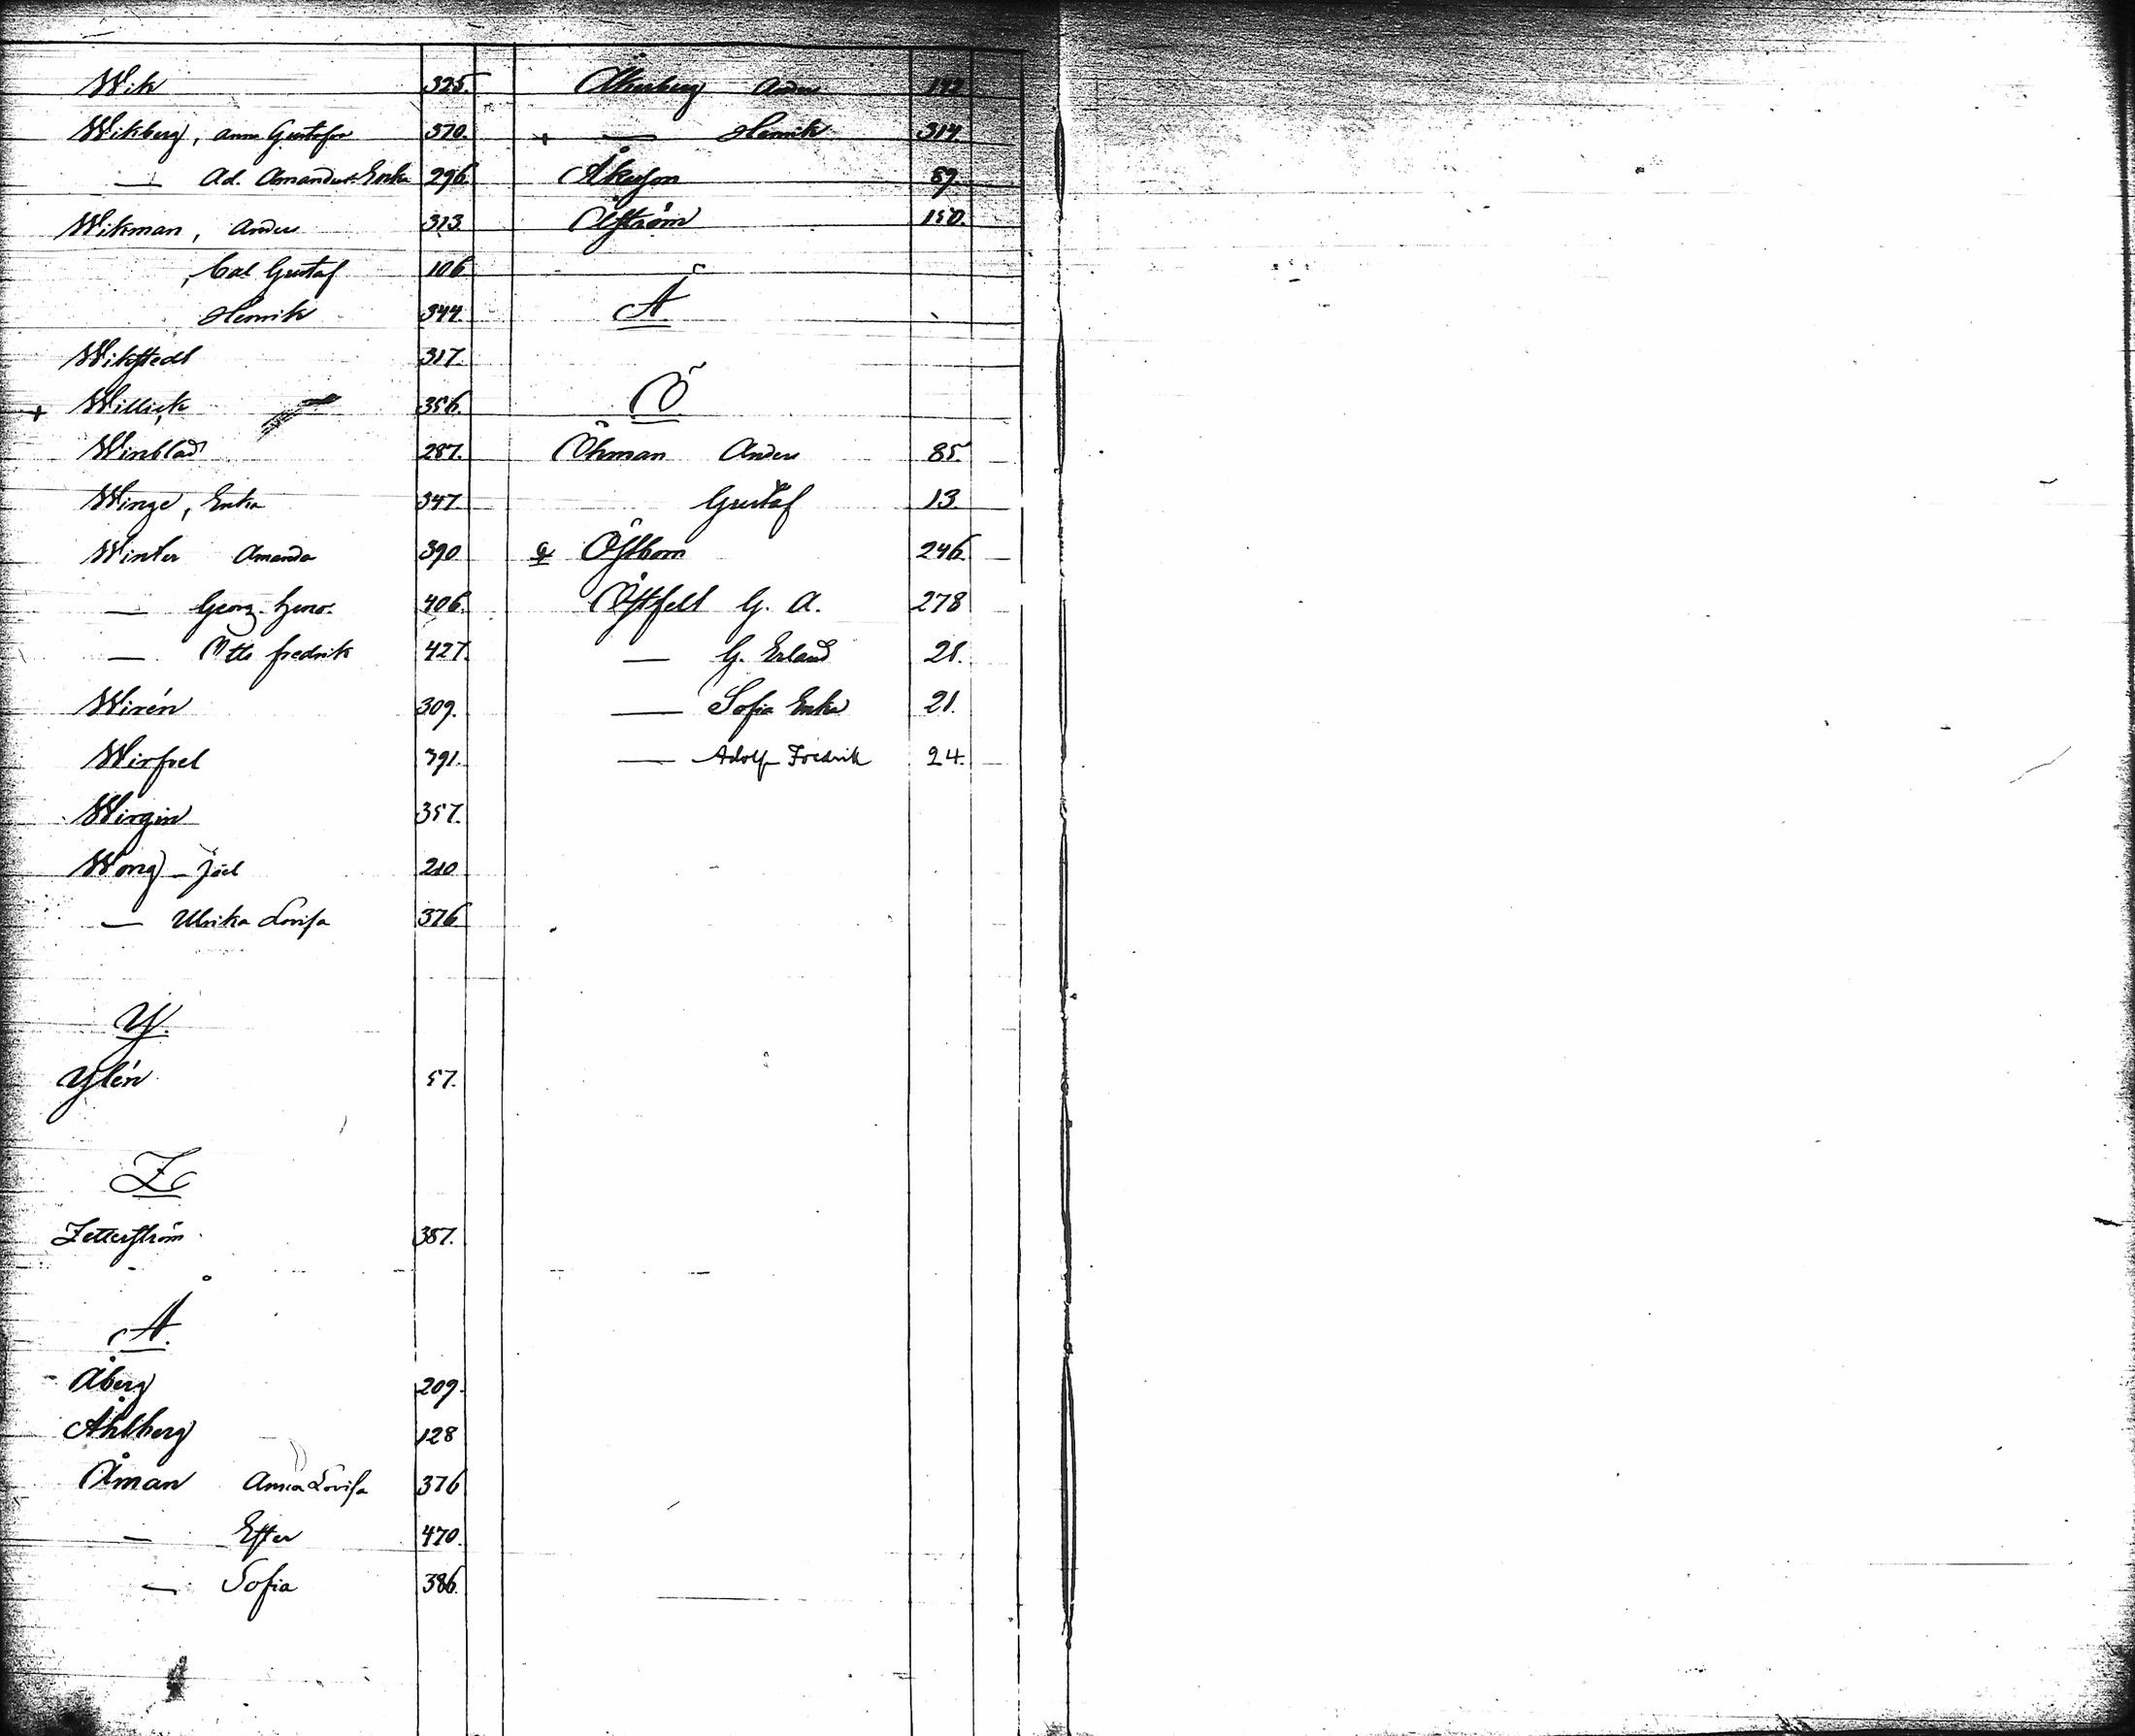 Wik 325.
Wikberg, Anna Gustafva 370.
— Ad. Amandus Enka 296.
Wikman, Anders 313.
, Carl Gustaf 106
Henrik 344.
Wikstedt 317.
+ Willick 356.
Winblad 287.
Winge, Enka 347.
Winter Amanda 390
— Georg 406.
— Otto Fredrik 427.
Wirén 309.
391.
Wirgin 357.
Wong – Joel 210
— Ulrika Lovisa 376
Y.
Ylén 57.
Z
Zetterström 387.
Å.
Åberg 209.
Åhlberg 128
Åman Anna Lovisa 376
— Ester 470.
— Sofia 386.
Åkerberg Anders
+ — Henrik 314.
Åkeson 89.
Åström 150.
Ä
Ö
Öhman Anders 85.
Gustaf 13.
Östbom 246.
Östfelt G. A. 278
— G. Erland 21.
— Sofia Enka 21.
— Adolf Fredrik 24.